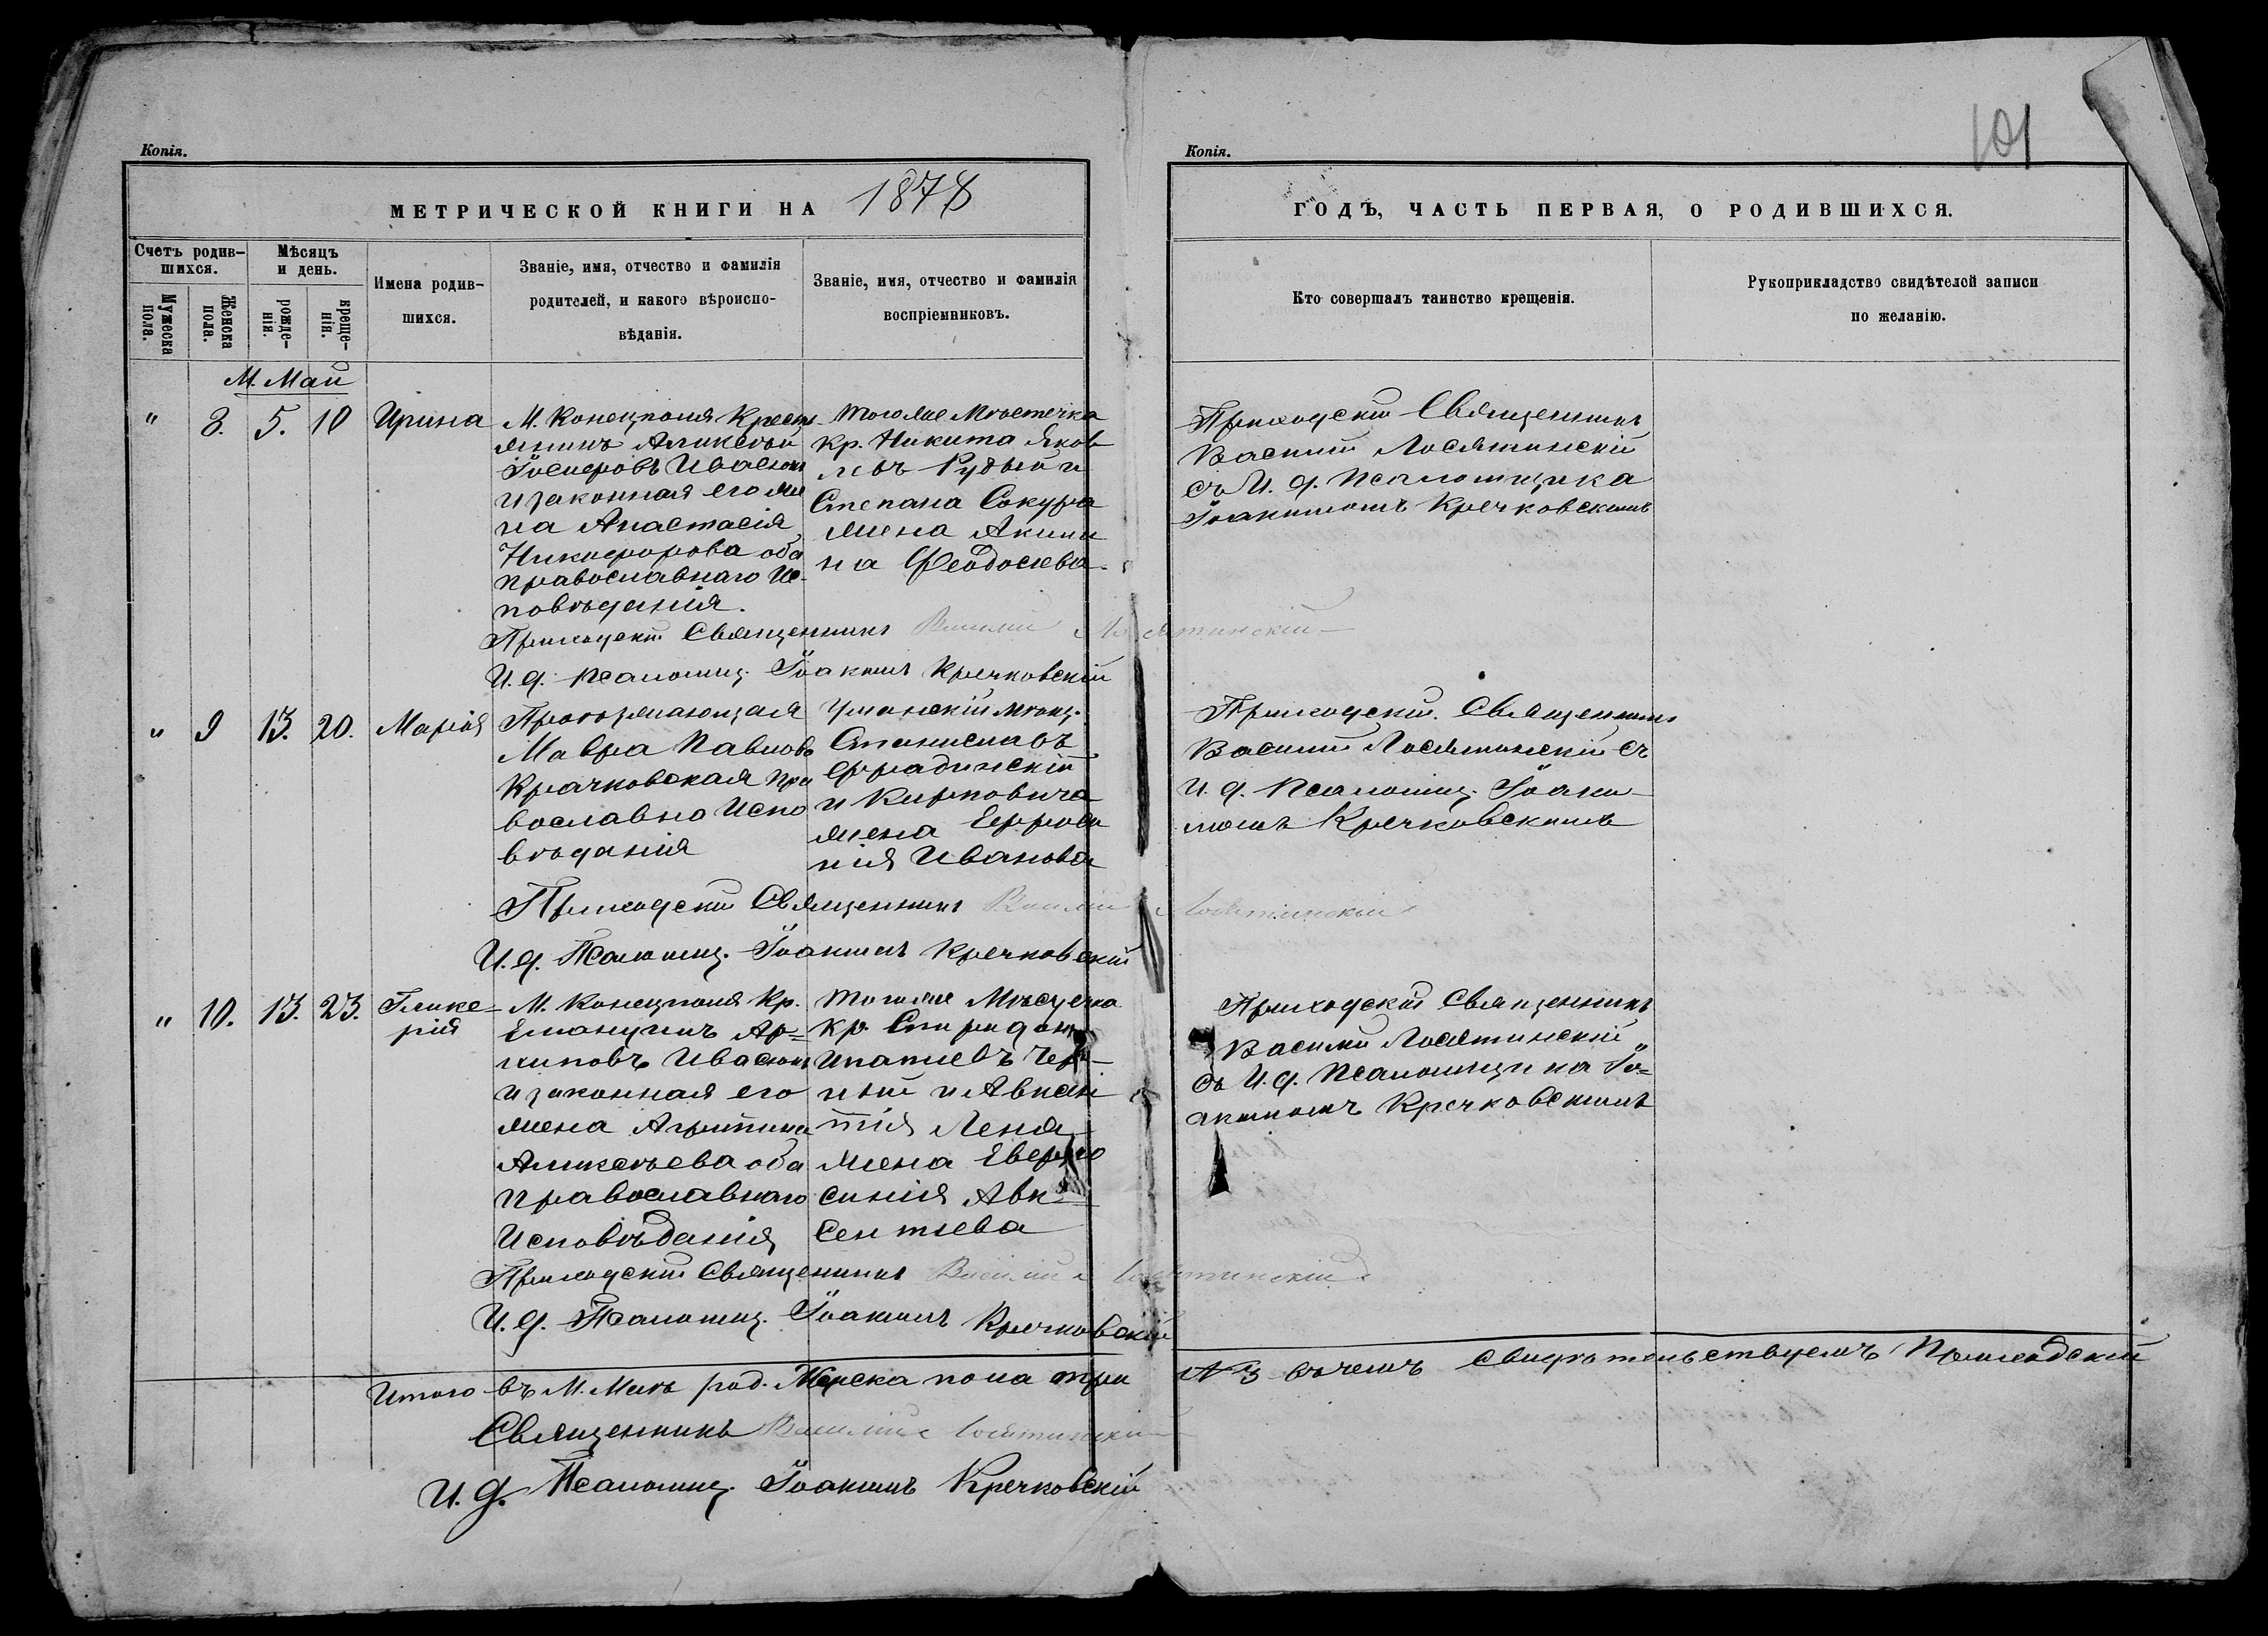 Копія.
МЕТРИЧЕСКОЙ КНИГИ НА 1878
Счетъ родив-
шихся.
Мужеска
пола.
Женска
пола.
Мѣсяцъ
и день.
рожде-
нія.
креще-
нія.
Имена родив-
шихся.
Званіе, имя, отчество и фамилія
родителей, и какого вѣроиспо-
вѣданія.
Званіе, имя, отчество и фамилія
воспріемниковъ.
М. Май
" 8. 5. 10 Ирина
М. Конецполя Крест
янинъ Аликсѣй
Іосифовъ Ивасюкъ
и законная его же
на Анастасія
Никифорова оба
православнаго Ис-
повѣданія.
тогоже Мѣстечка
Кр. Никита Яков
левъ Рудый и
Степана Сокура
жена Акили
на Феодосіева
Приходскій Священникъ Василій Лосятинскій
И. д. псаломщ. Іоакимъ Кречковскій
" 9 13. 20. Марія
Мавра Павлова
Крачковская пра
вославно Испо
вѣданія
Уманскій мѣщ.
Станиславъ
и Кирповича
жена Ефроси
нія Иванова
Приходскій Священникъ Василій Лосятинскій
И. д. Псаломщ. Іоакимъ Кречковскій
" 10. 13. 23. Глике-
рія
М. Конецполя Кр.
Емануилъ Ар=
хиповъ Ивасюкъ
и законная его
жена Агрипина
Аликсѣева оба
православнаго
Исповѣданія
тогоже Мѣсцечка
Кр. Спиридонъ
Ипатіевъ Чер-
ный и Авксен
тія Леня
жена Евфро
синія Авк=
сентіева
Приходскій Священникъ Василій Лосятинскій
И. д. Псаломщ. Іоакимъ Кречковскій
Итого въ М. Маѣ род. Женска пола три
Священникъ Василій Лосятинскій
И. д. Псаломщ. Іоакимъ Кречковскій
Копія.
101
ГОДЪ, ЧАСТЬ ПЕРВАЯ, О РОДИВШИХСЯ.
Кто совершалъ таинство крещенія.
Рукоприкладство свидѣтелей записи
по желанію.
Приходскій Священникъ
Василій Лосятинскій
съ И. д. псаломщика
Іоакимомъ Кречковскимъ
Приходскій. Священникъ
Василій Лосятинскій съ
И. д. Псаломщ. Іоаки-
момъ Кречковскимъ
Приходскій Священникъ
Василій Лосятинскій
съ И. д. Псаломщика Іо=
акимомъ Кречковскимъ
№ 3 въ чемъ свидѣтельствуемъ Приходскій